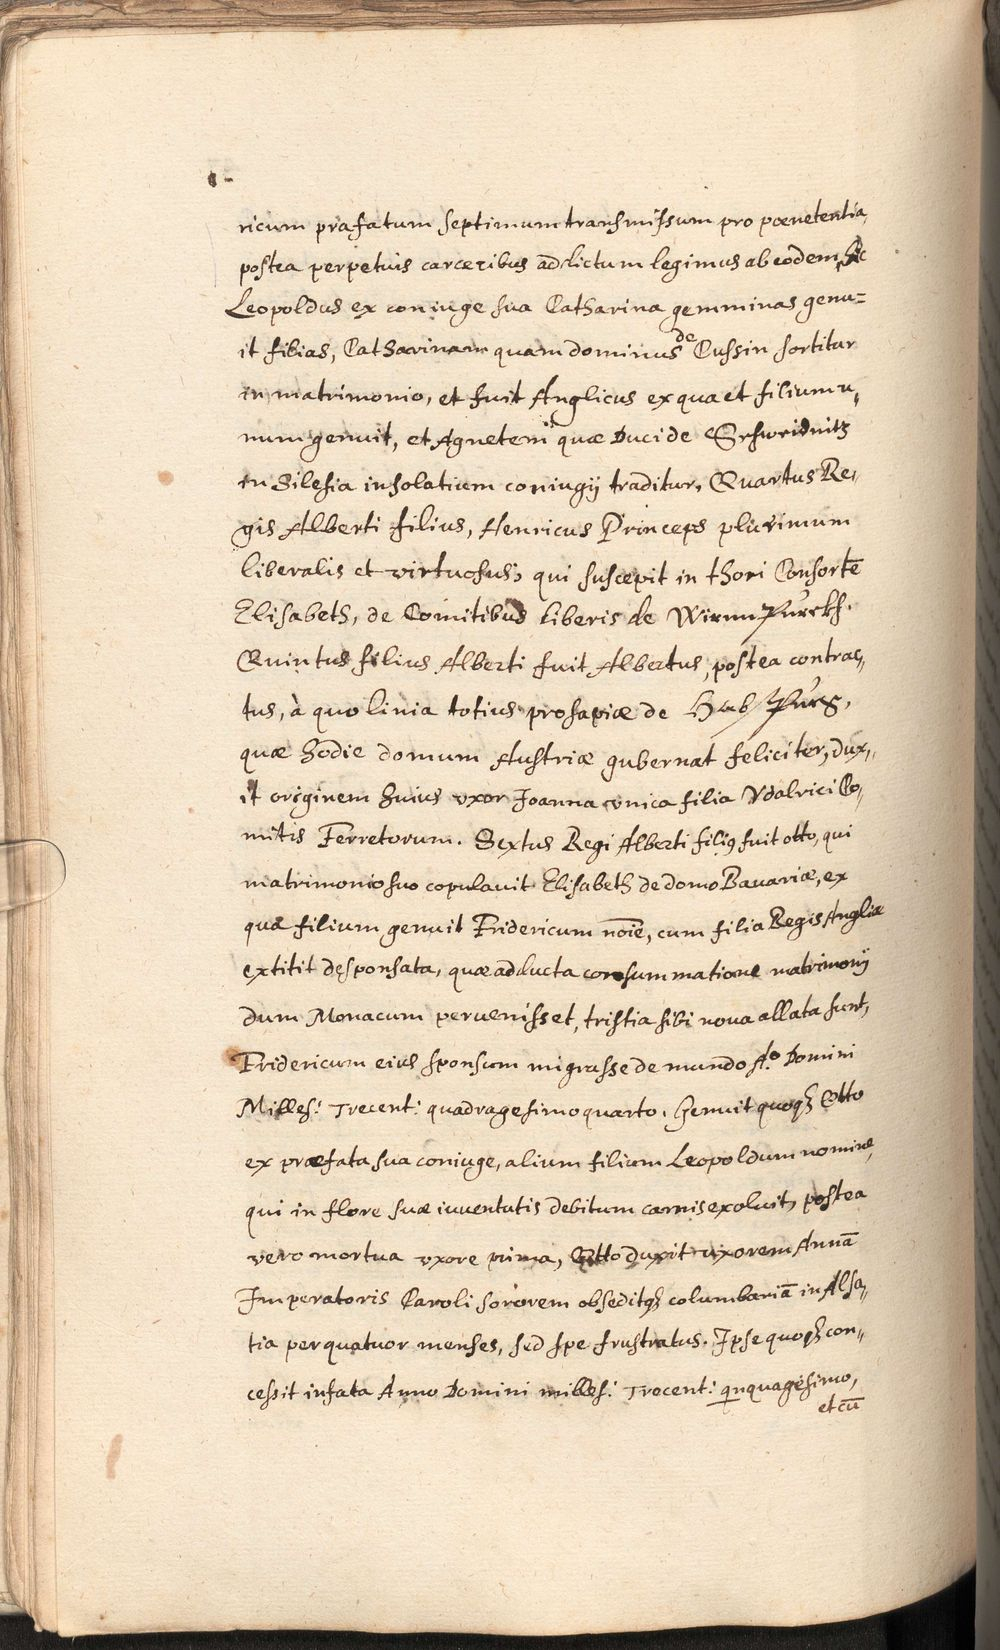 ricum præfatum septimum transmissum pro pœnetentia,
postea perpetuis carceribus addictum legimus ab eodem, Hic
Leopoldus ex coniuge sua Catharina gemminas genu=
it filias, Catharinam quam dominus de Cussin sortitur
in matrimonio, et fuit Anglicus ex qua et filium u,,
num genuit, et Agnetem quæ Duci de Schweidnitz
in Silesia in solatium coniugij traditur, Quartus Re,,
gis Alberti filius, Henricus Princeps plurimum
liberalis et virtuosus, qui suscepit in thori Consortē
Elisabeth, de Comitibus liberis de Wirnnpurckh.
Quintus filius Alberti fuit Albertus, postea contrac,,
tus, à quo linia totius prosapiæ de Habspurg,
quæ hodie domum Austriæ gubernat feliciter, dux,,
it originem huius uxor Joanna unica filia Vdalrici Co,,
mitis Ferretorum. Sextus Regi Alberti filiꝰ fuit otto, qui
matrimonio suo copulauit Elisabeth de domo Bauariæ, ex
qua filium genuit Fridericum noīe, cum filia Regis Angliæ
extitit desponsata, quæ adducta consummatione matrimonij
dum Monacum peruenisset, tristia sibi noua allata sunt,
Fridericum eius sponsum migrasse de mundo Aº Domini
Milles: Trecent: quadragesimo quarto. Genuit quoqꝫ Otto
ex præfata sua coniuge, alium filium Leopoldum nomine,
qui in flore suæ iuuentutis debitum carnis exoluit, postea
vero mortua uxore prima, Otto duxit uxorem Annā
Imperatoris Caroli sororem obseditqꝫ columbariā in Alsa,,
tia per quatuor menses, sed spe frustratus. Ipse quoqꝫ con,,
cessit in fata Anno Domini milles: Trecent: qinquagesimo,
et cū